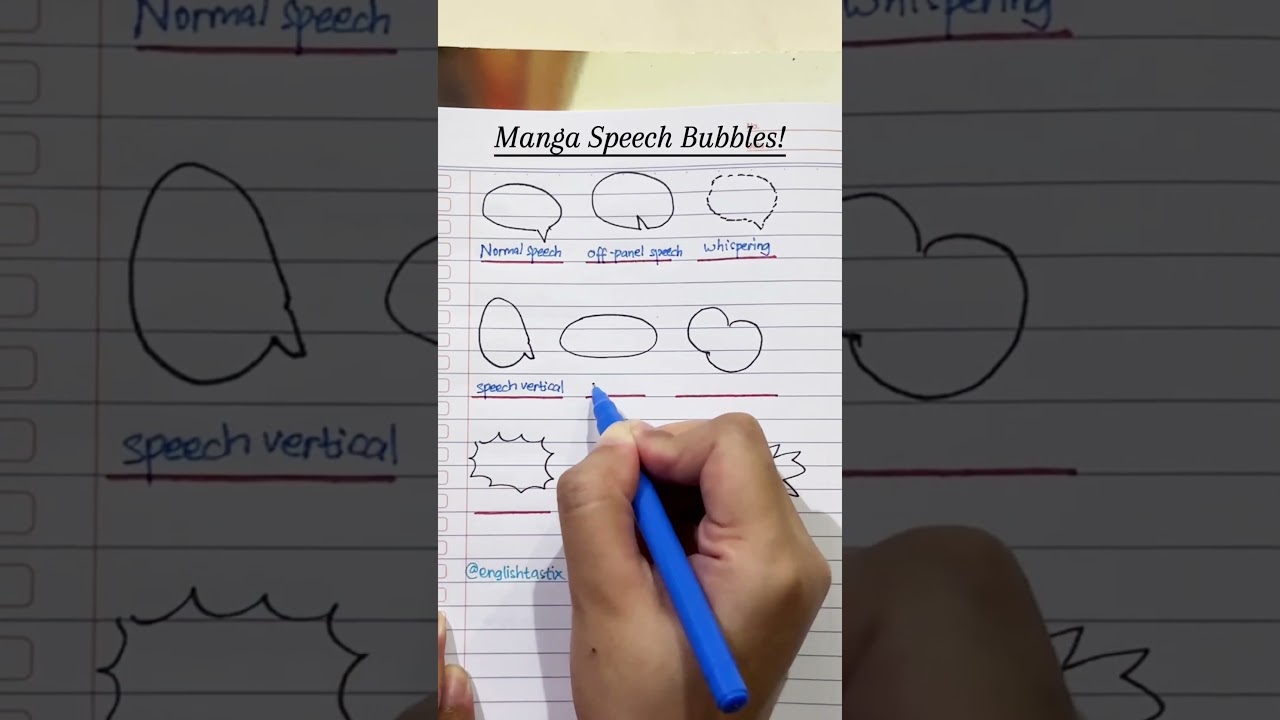 Manga Speech Bubbles!
Normal speech
off-panel speech
whispering
speech vertical
@englishtastix
Normal speech
whispering
speech vertical